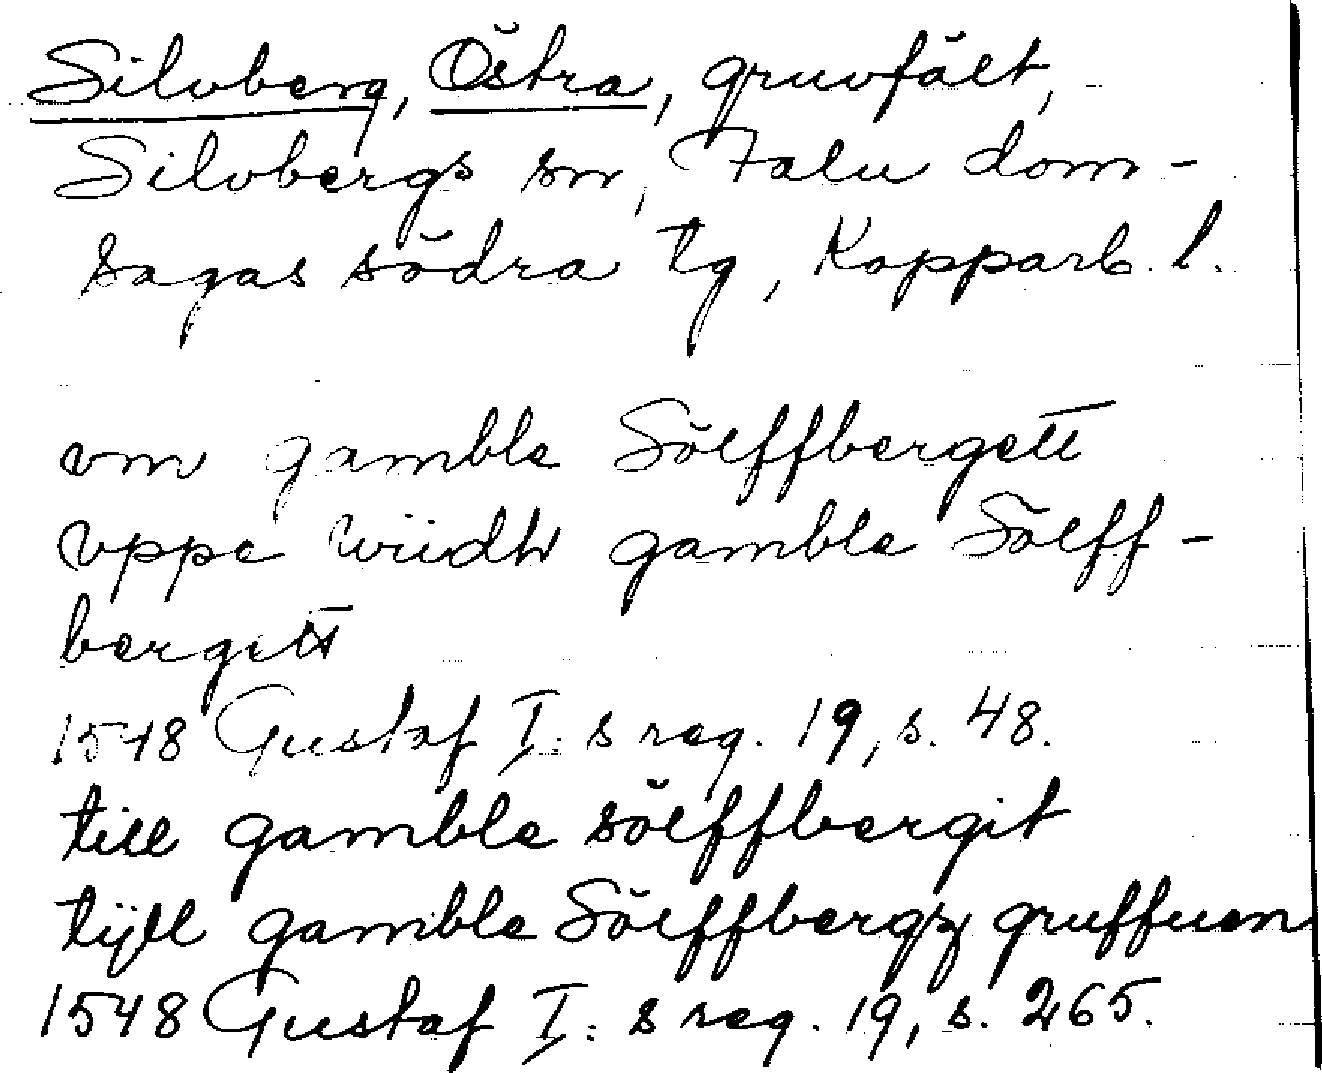 Silvberg, Östra, gruvfält,
Silvbergs sn, Falu dom-
sagas södra tg, Kopparb. l.
vm gamble Sölffbergett
vppe wiidh gamble Sölff-
bergett
1548 Gustaf I:s reg. 19, s. 48.
till gamble sölffbergit
tijll gamble Sölffbergz gruffuen
1548 Gustaf I:s reg. 19, s. 265.